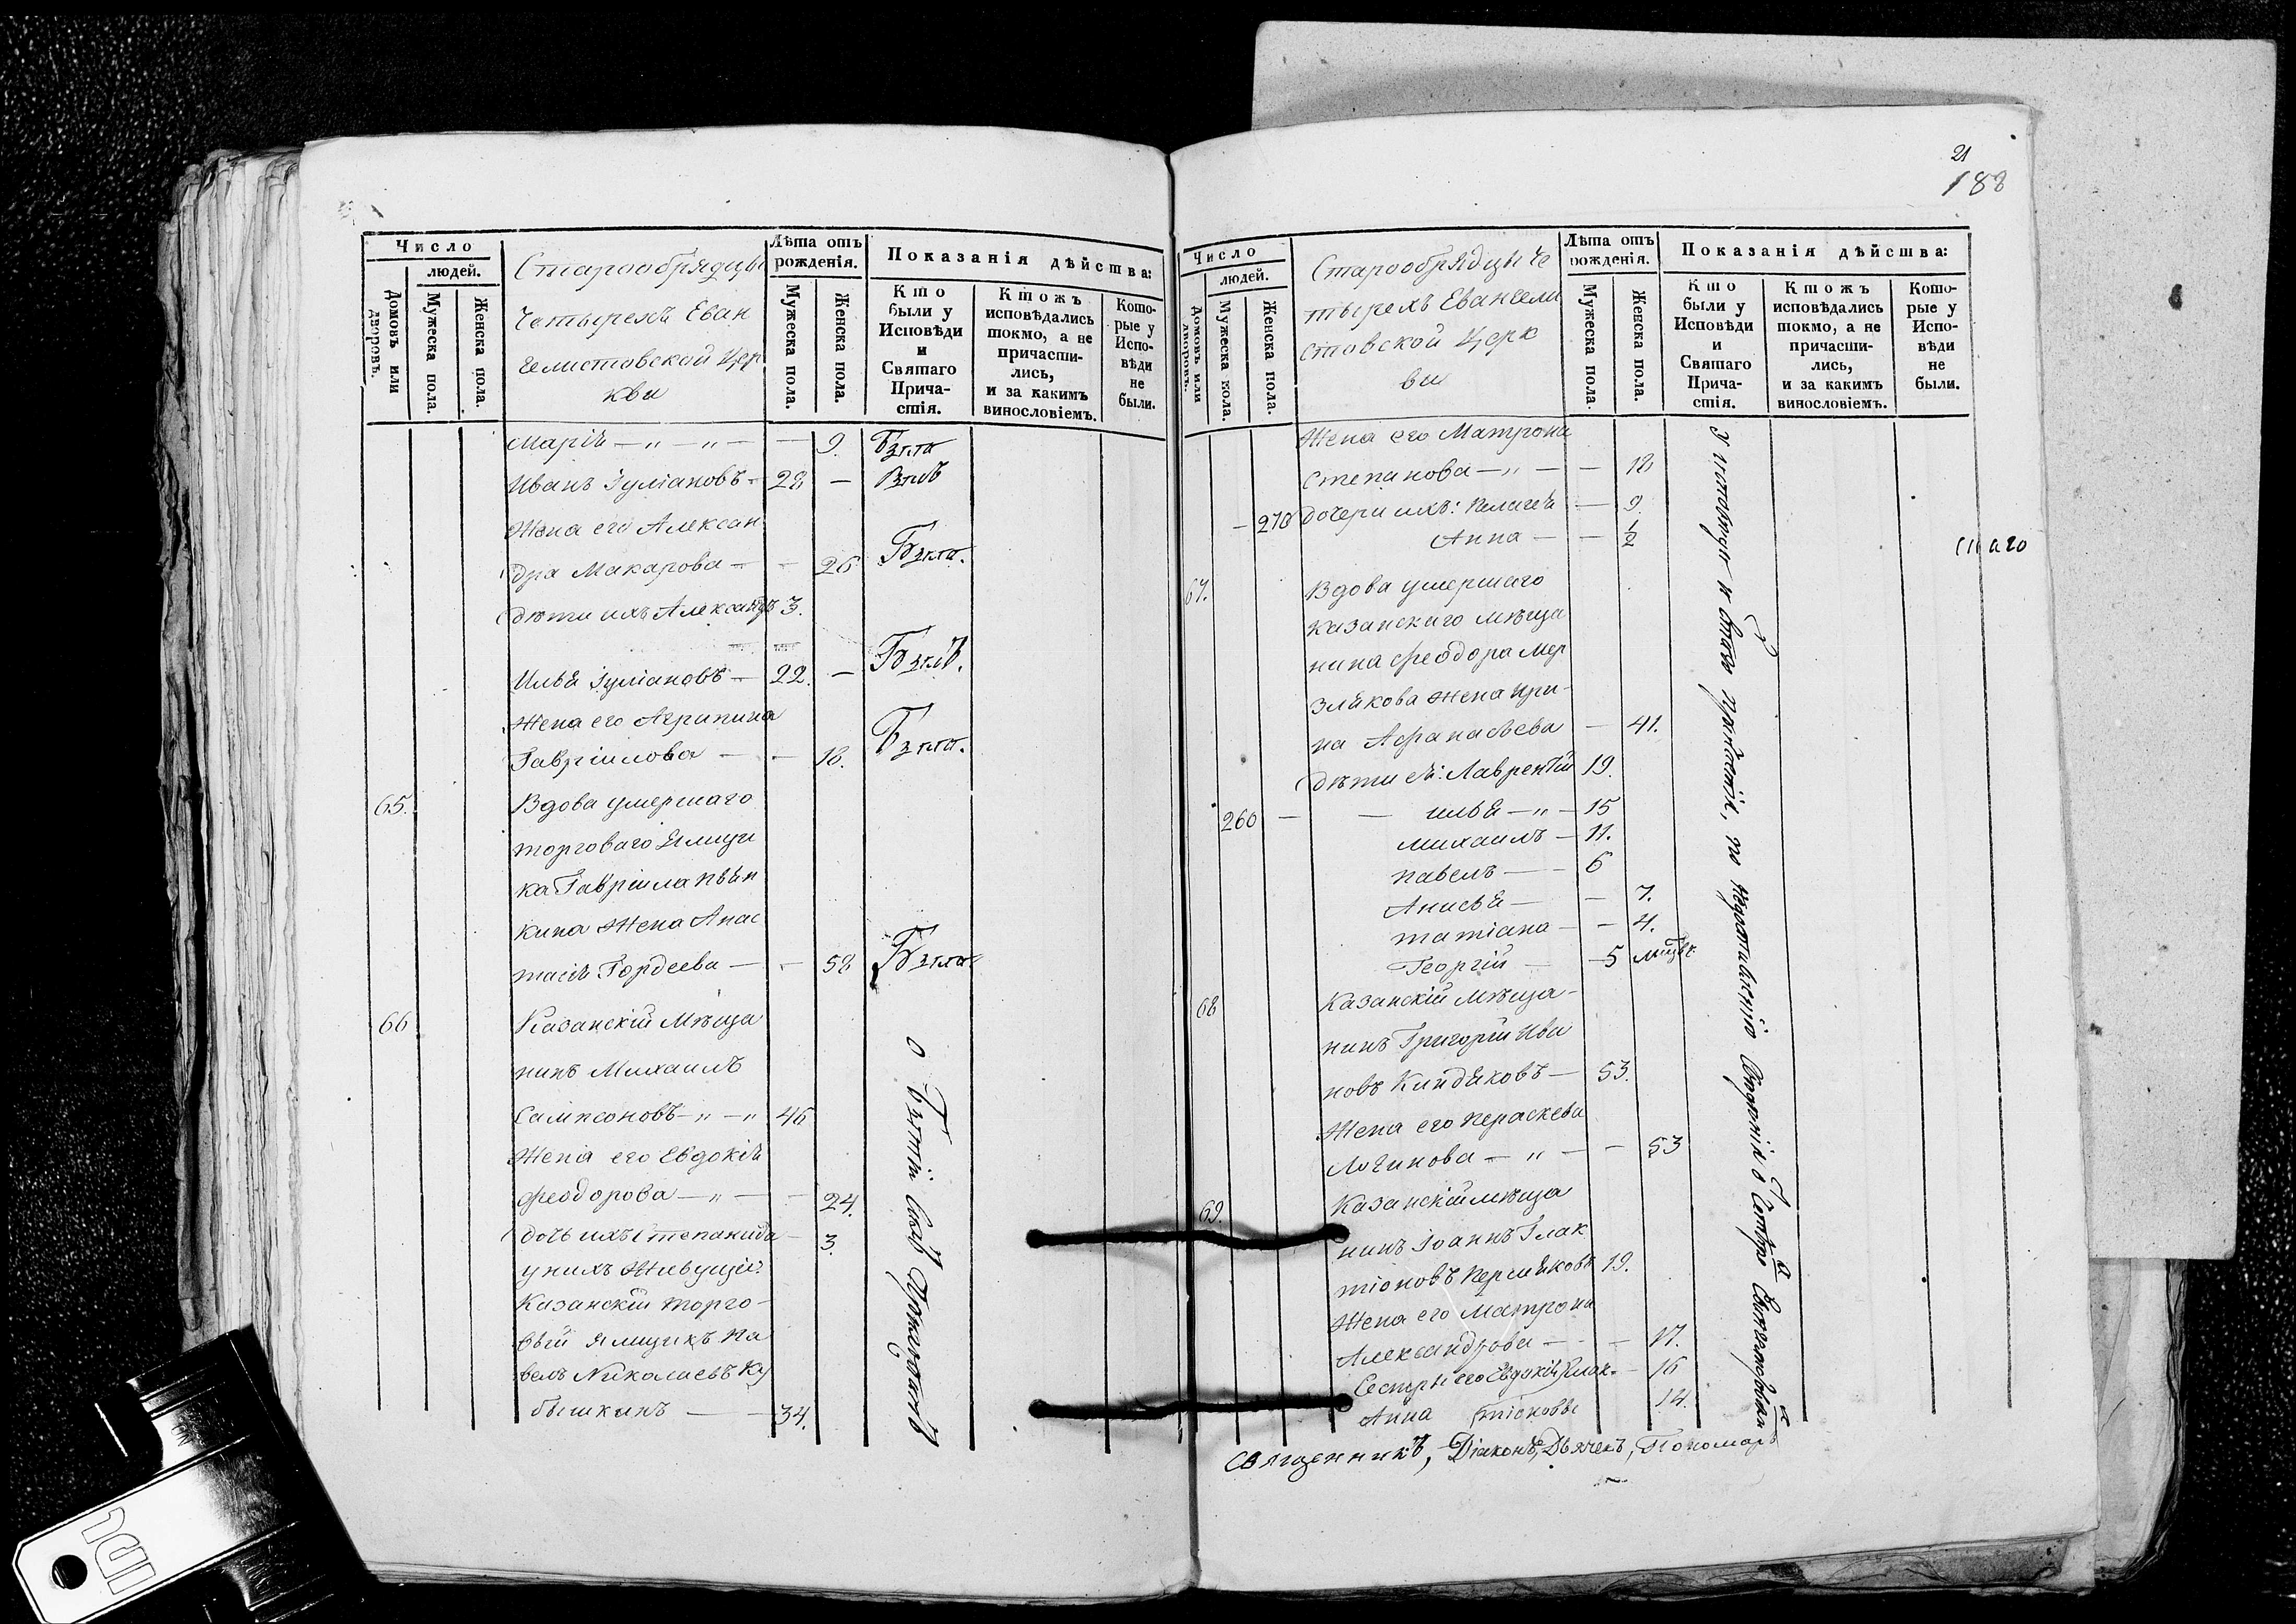 Число
людей.
Домовъ или дворовъ.
Мужеска пола.
Женска пола.
Старообрядцы
Четырехъ Еван
гелистовской Цер
кви
Лѣта отъ
рожденія.
Мужеска пола.
Женска пола.
Показанія дѣйства:
Кто
были у
Исповѣди
и
Святаго
Прича-
стія.
Ктожъ
исповѣдались
токмо, а не
причасти-
лись,
и за какимъ
винословіемъ.
Кото-
рые у
Испо-
вѣди
не
были.
Марія — „ — „ — — 9.
Иванъ Іуліановъ — 28 —
Жена его Алексан
дра Макарова — — 26
дѣти ихъ Александръ 3.
Илья Іуліановъ — 22. —
Жена его Агрипина
Гавріилова — — 18.
65. Вдова умершаго
торговаго Ямщи
ка Гавріила Пьян
кина Жена Анас
тасія Гордеева — — 58
66 Казанскій Мѣща
нинъ Михаилъ
Сампсоновъ — „ — „ 46
Жена его Евдокія
Феодорова — „ — — 24.
дочь ихъ Степанида — 3.
у нихъ Живущій:
Казанскій торго-
вый Ямщикъ Па
велъ Николаевъ Ку
бышкинъ — — 34.
21
188
Число
людей.
Домовъ или дворовъ.
Мужеска пола.
Женска пола.
Старообрядцы Че
тырехъ Евангели
стовской Церк
ви
Лѣта отъ
рожденія.
Мужеска пола.
Женска пола.
Показанія дѣйства:
Кто
были у
Исповѣди
и
Святаго
Прича-
стія.
Ктожъ
исповѣдались
токмо, а не
причасти-
лись,
и за какимъ
винословіемъ.
Кото-
рые у
Испо-
вѣди
не
были.
Жена его Матрона
Степанова — „ — — 18
— 270 дочери ихъ: Пелагея — 9.
Анна — — 1/2
67. Вдова умершаго
Казанскаго мѣща
нина Феодора Мер
злякова Жена Ири-
на Афанасьева — 41.
дѣти ея: Лаврентій 19.
260 — — Илья — „ — 15
Михаилъ — 11.
Павелъ — — 6
Анисья — — 7.
Татіана — — 4.
Георгій — 5
68 Казанскій мѣща-
нинъ Григорій Ива
новъ Киндяковъ — 53.
Жена его Пераскева
Логинова — „ — — 53
69. Казанскій мѣща
нинъ Іоаннъ Галак
тіоновъ Пермяковъ 19.
Жена его Матрона
Александрова — — — 17.
Сестры его Евдокія Галак- — 16
Анна тіоновы 14.
Священникъ, Діаконъ, Дьячекъ, Пономарь